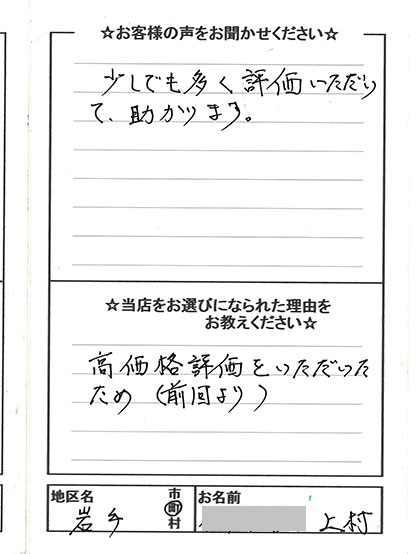 ☆お客様の声をお聞かせください☆
少しでも多く評価いただい
て、助かります。
☆当店をお選びになられた理由を
お教えください☆
高価格評価をいただいた
ため(前回より)
地区名 市町村 お名前
岩手 上村